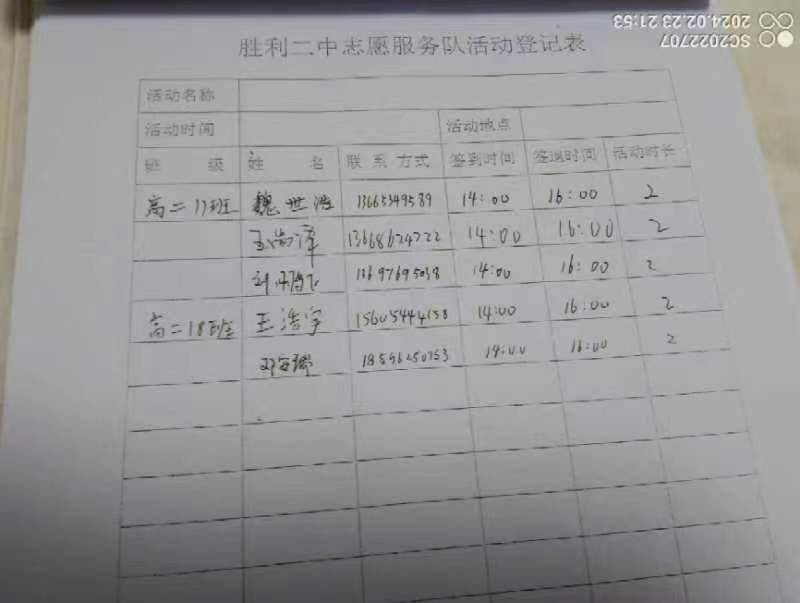 SC2022707 2024.02.23 21:53
胜利二中志愿服务队活动登记表
活动名称
活动时间 活动地点
班 级 姓 名 联系方式 签到时间 签退时间 活动时长
高二17班 魏世浩 13665349589 14:00 16:00 2
14:00 16:00 2
14:00 16:00 2
高二18班 王浩宇 15605444158 14:00 16:00 2
14:00 16:00 2